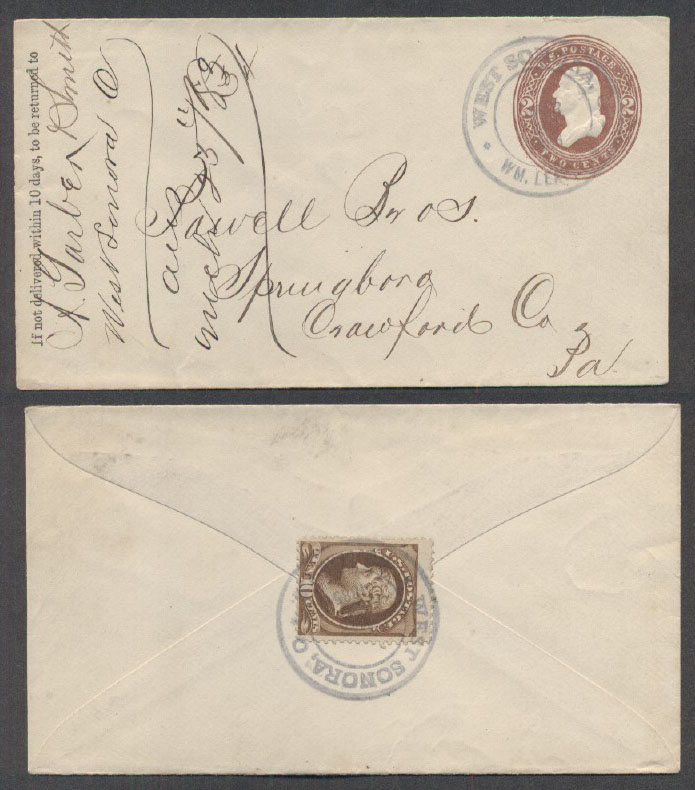 If not delivered within 10 days, to be returned to
A. Garber Smith
West Sonora O
Powell Bros.
Springboro
Crawford Co
Pa
WEST SONORA
WM. LER
U.S. POSTAGE
2 2
TWO CENTS
U.S. POSTAGE
WEST SONORA, O